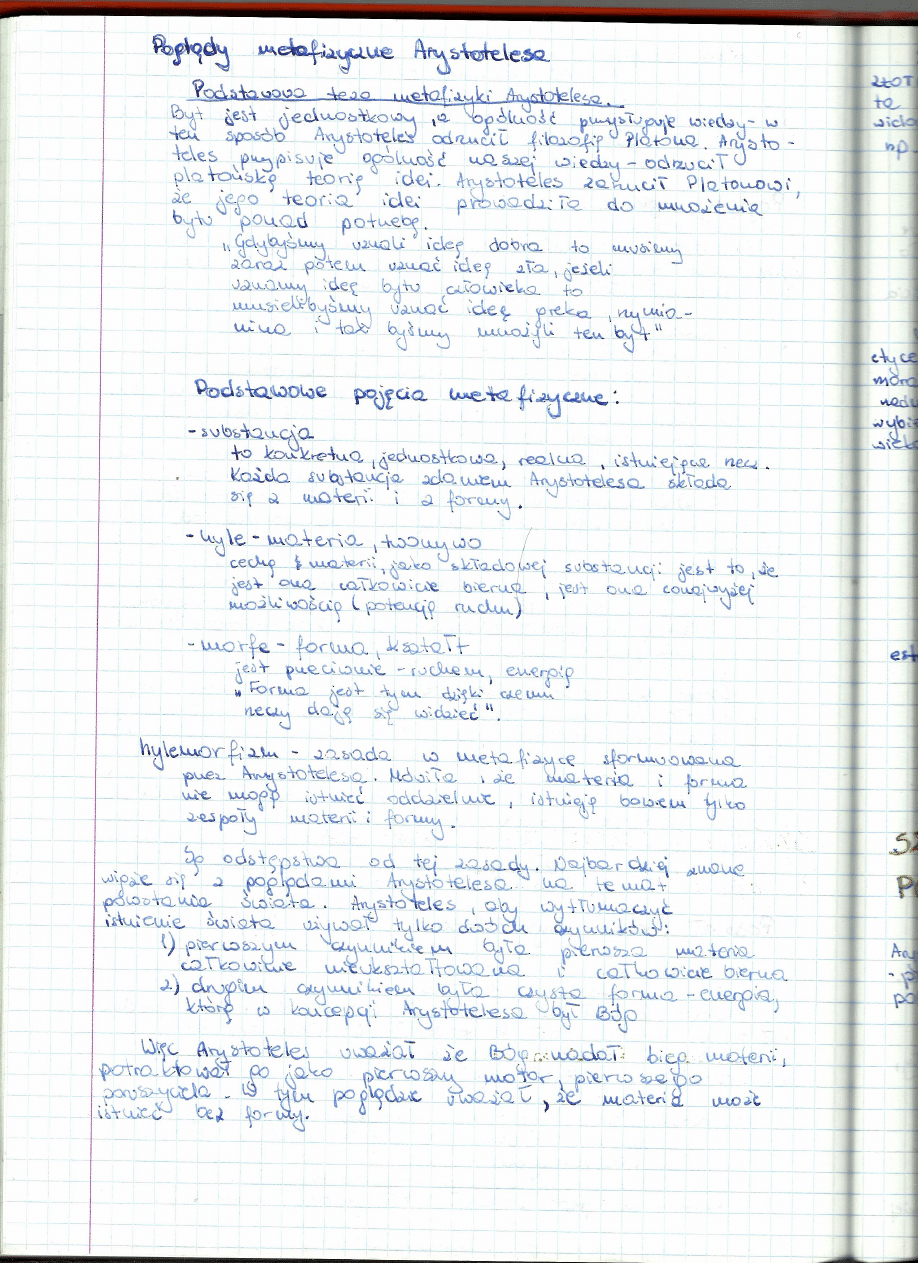 Poglądy metafizyczne Arystotelesa
Podstawowa teza metafizyki Arystotelesa.
Byt jest jednostkowy, a ogólność przysługuje wiedzy - w
ten sposób Arystoteles odrzucił filozofię Platona. Arysto-
teles przypisuje ogólność naszej wiedzy - odrzucił
platońską teorię idei. Arystoteles zarzucił Platonowi,
że jego teoria idei prowadziła do mnożenia
bytu ponad potrzebę.
"Gdybyśmy uznali ideę dobra to musimy
zaraz potem uznać ideę zła, jeśeli
uznamy ideę bytu człowieka to
musielibyśmy uznać ideę greka, rzymia-
nina i tak byśmy mnożyli ten byt"
Podstawowe pojęcia metafizyczne:
- substancja
to konkretna, jednostkowa, realna, istniejąca rzecz.
Każda substancja zdaniem Arystotelesa składa
się z materii i z formy.
- hyle - materia, tworzywo
cechą materii, jako składowej substancji jest to, że
jest ona całkowicie bierna, jest ona conajwyżej
możliwością (potencją ruchu)
- morfe - forma, kształt
jest przeciwnie - ruchem, energią
"Forma jest tym dzięki czemu
rzeczy dają się widzieć".
hylemorfizm - zasada w metafizyce sformuowana
przez Arystotelesa. Mówiła, że materia i forma
nie mogą istnieć oddzielnie, istnieją bowiem tylko
zespoły materii i formy.
Są odstępstwa od tej zasady. Najbardziej znane
wiąże się z poglądami Arystotelesa na temat
powstania świata. Arystoteles, aby wytłumaczyć
istnienie świata używał tylko dwóch czynników:
1) pierwszym czynnikiem była pierwsza materia
całkowicie nieukształtowana i całkowicie bierna
2) drugim czynnikiem była czysta forma - energia,
którą w koncepcji Arystotelesa był Bóg
Więc Arystoteles uważał że Bóg nadał bieg materii,
potraktował go jako pierwszy motor, pierwszego
poruszyciela. W tym poglądzie uważał, że materia może
istnieć bez formy.
złoT
ta
wielo
np
etyce
mora
nadu
wybi
wielo
est